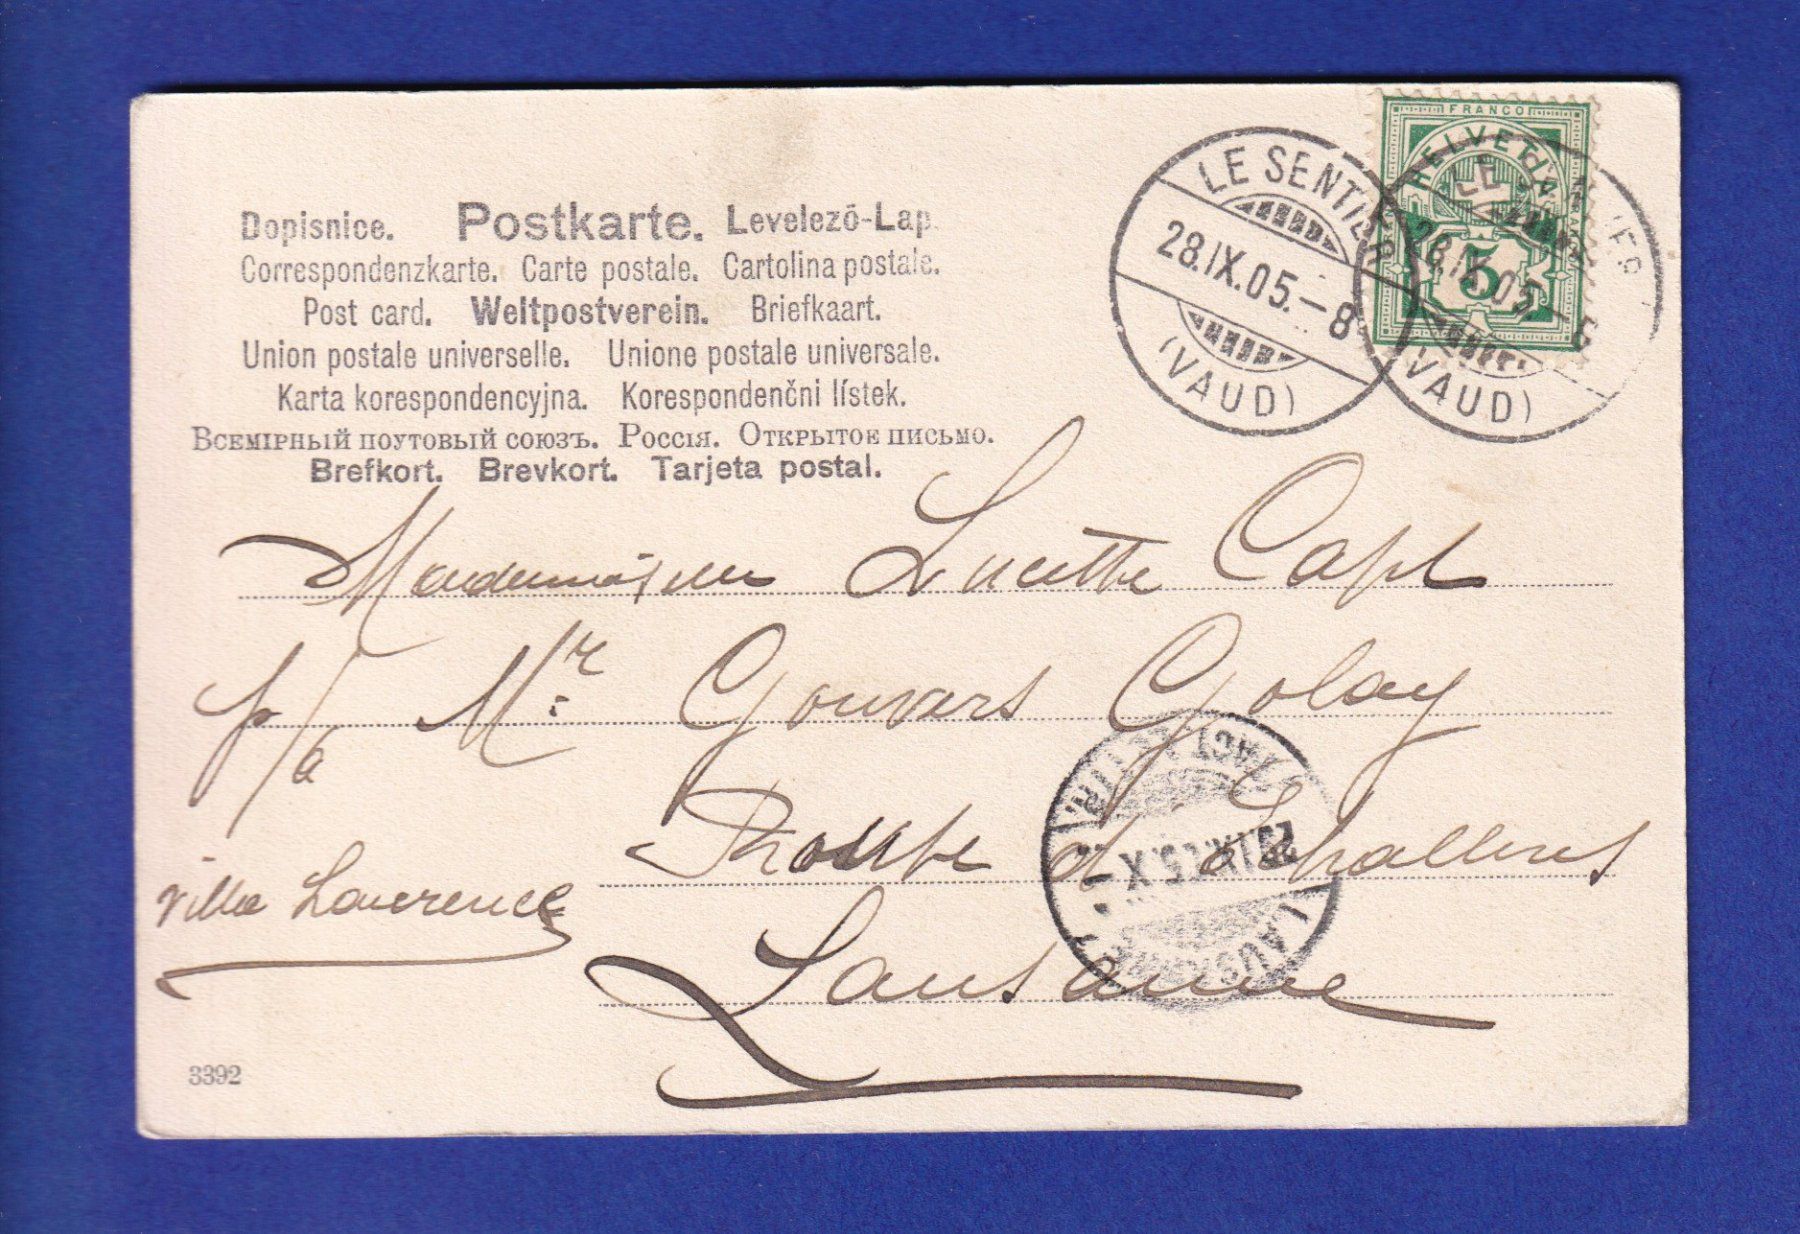 Dopisnice. Postkarte. Levelező-Lap.
Correspondenzkarte. Carte postale. Cartolina postale.
Post card. Weltpostverein. Briefkaart.
Union postale universelle. Unione postale universale.
Karta korespondencyjna. Korespondenčni lístek.
Всемірный поутовый союзъ. Россія. Открытое письмо.
Brefkort. Brevkort. Tarjeta postal.
FRANCO
HELVETIA
5
LE SENTIER
28.IX.05.-8
(VAUD)
LE
28.IX.05.-
VAUD)
Mademoiselle Lucette Capt
p/a Mr. Golay
Route d'Echallens
Villa Laurence
Lausanne
3392